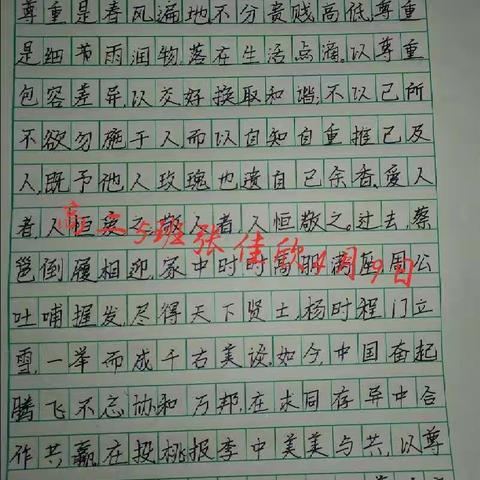 尊重是春风遍地不分贵贱高低,尊重
是细节雨润物,落在生活点滴。以尊重
包容差异以交好换取和谐;不以己所
不欲勿施于人而以自知自重推己及
人,既予他人玫瑰也遗自己余香。爱人
者,人恒爱之,敬人者,人恒敬之。过去,蔡
高三5班张佳欣4月9日
邕倒屣相迎,家中时时高朋满座周公
吐哺握发,尽得天下贤士,杨时程门立
雪,一举而成千古美谈。如今,中国奋起
腾飞不忘协和万邦,在求同存异中合
作共赢。在投桃报李中美美与共,以尊